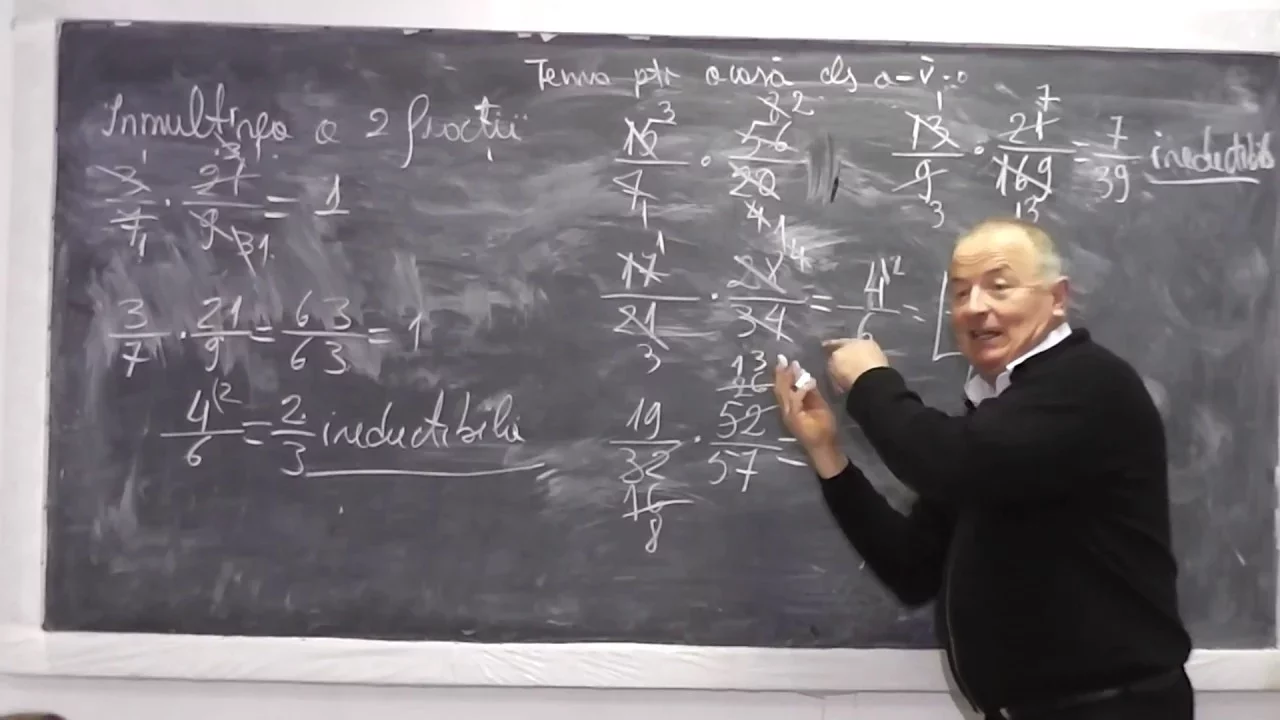 Tema ptr acasă cls a-V-a
Inmulţirea a 2 fracţii
3/7 · 21/9 = 1
3/7 · 21/9 = 63/63 = 1
4/6 (2 = 2/3 ireductibilă
56/20
13/9 · 21/169 = 7/39 ireductibilă
17/21 · 34 = 4/6 (2 =
19/32 · 52/57 =
26
13
16
8